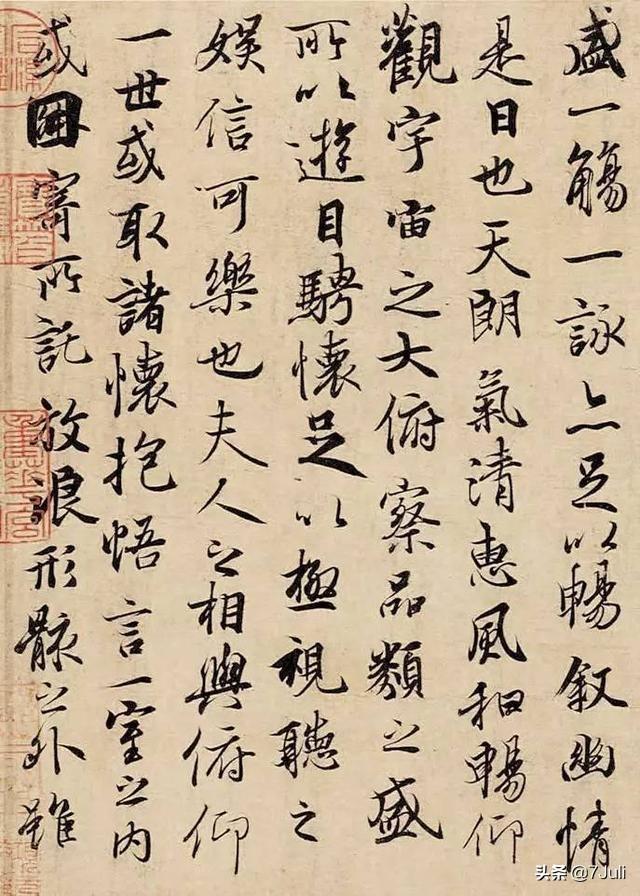 盛一觴一詠亦足以暢叙幽情
是日也天朗氣清惠風和暢仰
觀宇宙之大俯察品類之盛
所以遊目騁懷足以極視聽之
娛信可樂也夫人之相與俯仰
一世或取諸懷抱悟言一室之內
或因寄所託放浪形骸之外雖
头条 @7Juli